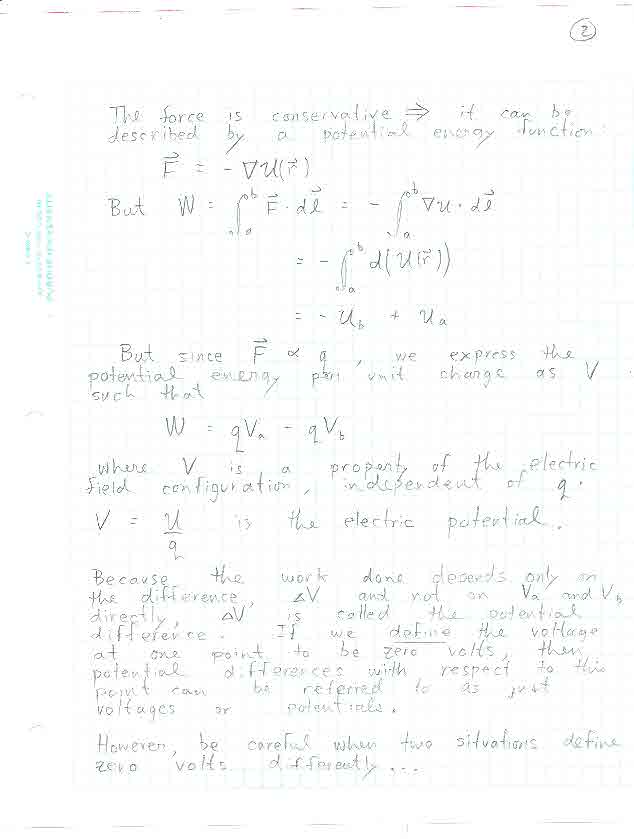 2
The force is conservative ⇒ it can be
described by a potential energy function:
F⃗ = - ∇U(r⃗)
But W = ∫ₐᵇ F⃗ · dl⃗ = - ∫ₐᵇ ∇U · dl⃗
= - ∫ₐᵇ d(U(r⃗))
= - U_b + U_a
But since F⃗ ∝ q, we express the
potential energy per unit charge as V.
such that
W = qVₐ - qV_b
where V is a property of the electric
field configuration, independent of q.
V = U/q is the electric potential.
Because the work done depends only on
the difference, ΔV and not on Vₐ and V_b
directly, ΔV is called the potential
difference. If we define the voltage
at one point to be zero volts, then
potential differences with respect to this
point can be referred to as just
voltages or potentials.
However, be careful when two situations define
zero volts differently...